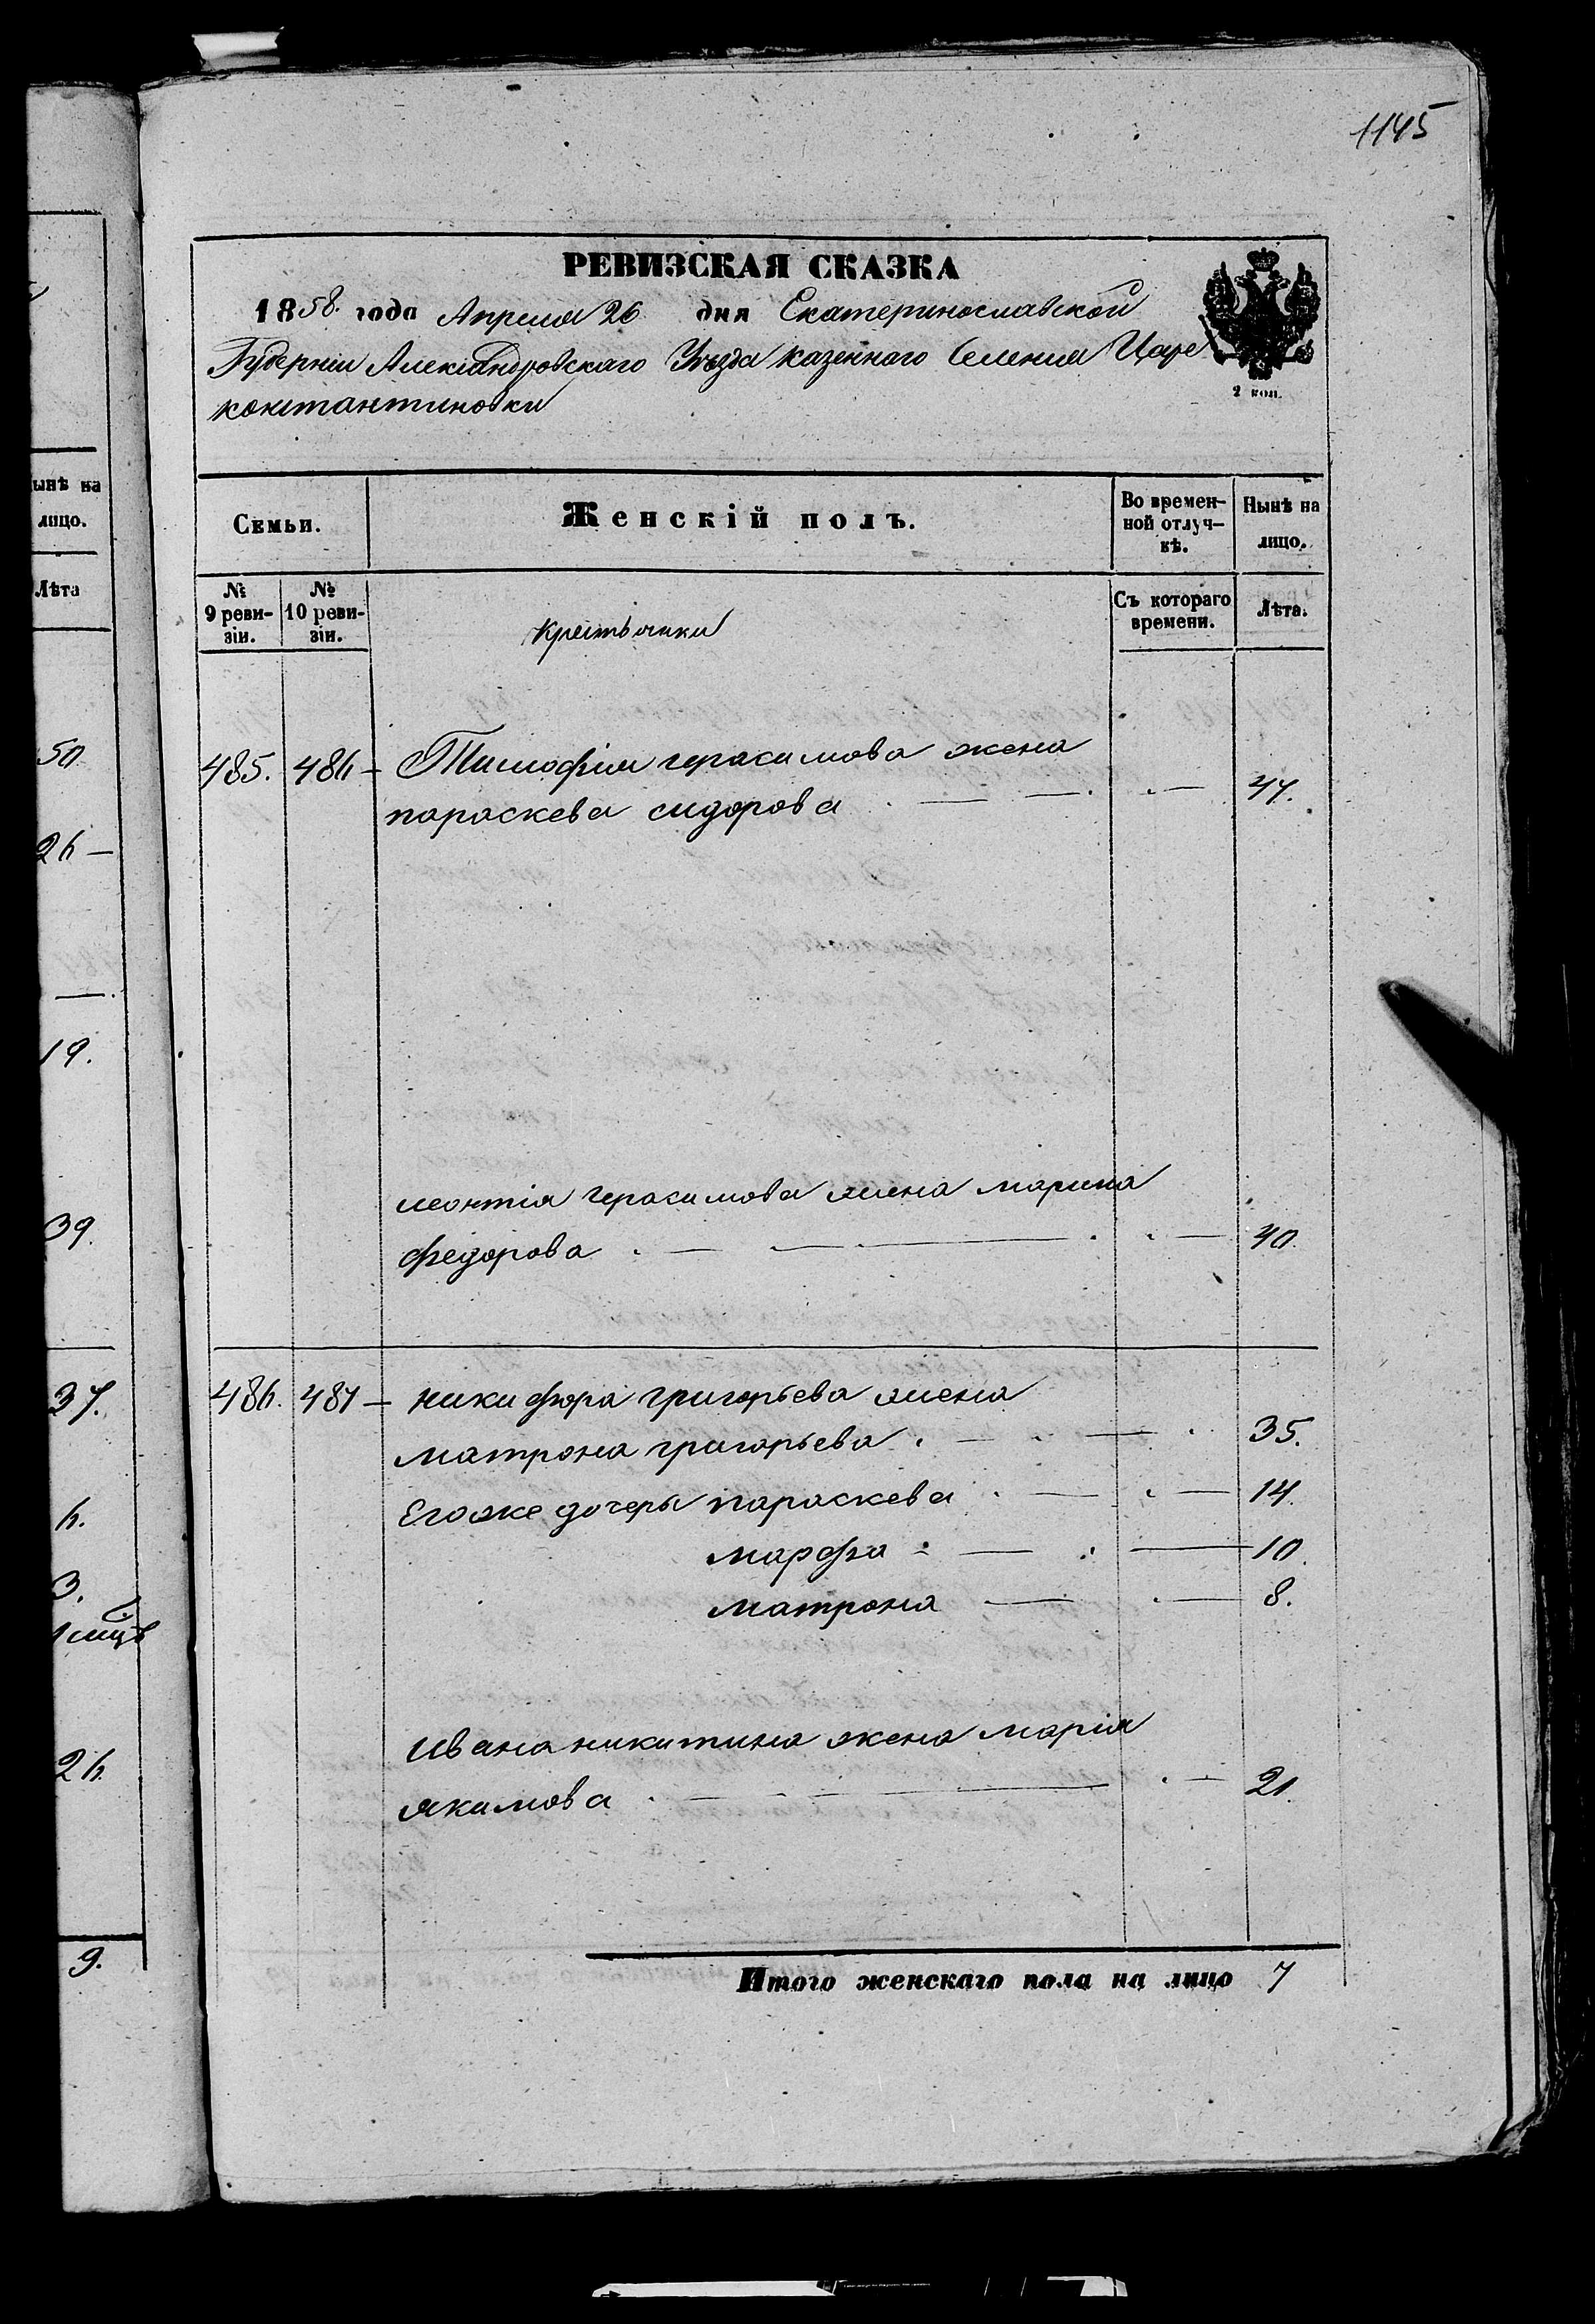 1145
РЕВИЗСКАЯ СКАЗКА
1858. года Апреля 26 дня Екатеринославской
Губерніи Александровскаго Уѣзда казенного Селенія Царе
константиновки
2 коп.
Семьи.
Женскій полъ.
Во времен-
ной отлуч-
кѣ.
Нынѣ на
лицо.
№ 9 реви-
зіи.
№ 10 реви-
зіи.
крестьянки
Съ котораго
времени.
Лѣта.
485. 486 - Тимофія герасимова жена
параскева сидорова 47.
леонтія герасимова жена марина
федорова 40.
486. 487 - никифора григорьева жена
матрона григорьева 35.
Егоже дочери параскева 14.
марфа 10.
матрона 8.
ивана никитина жена марія
якимова 21.
Итого женскаго пола на лицо 7
ынѣ на
лицо.
Лѣта
50
26 -
19.
39.
37.
6.
3.
26.
9.